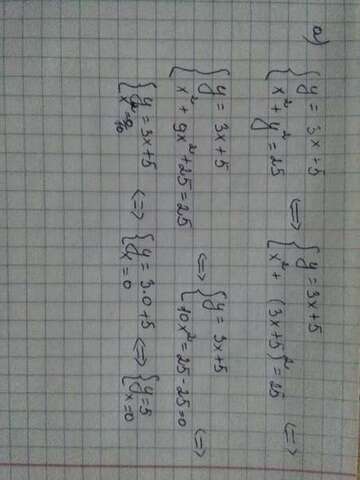 a)
{ y = 3x+5 {x² + y² = 25 <=> { y = 3x+5 {x² + (3x+5)² = 25 <=>
{ y = 3x+5 {x² + 9x² + 25 = 25 <=> { y = 3x+5 {10x² = 25-25=0 <=>
{ y = 3x+5 <=> { y = 3·0+5 {x = 0 <=> { y=5 {x=0